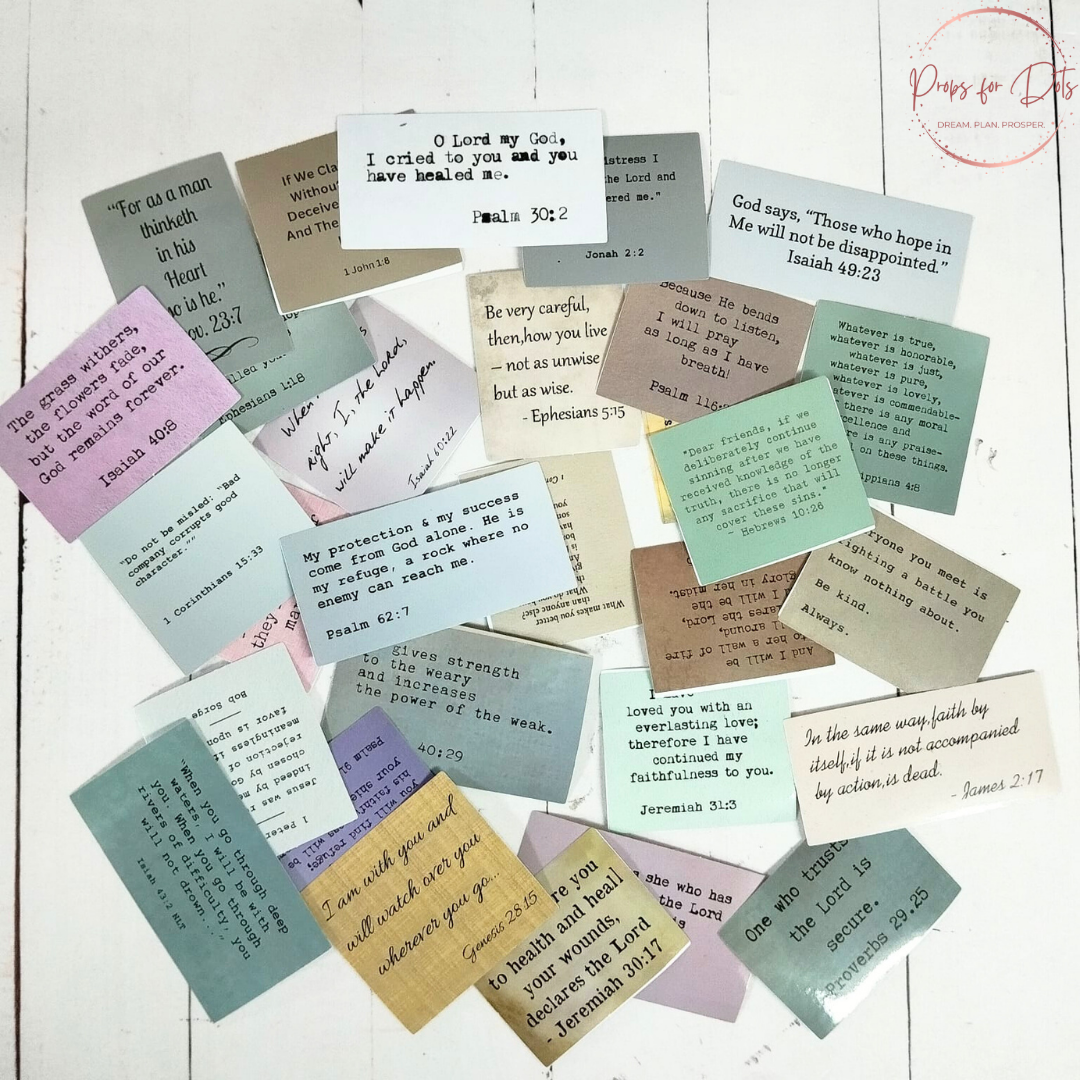 Props for Dots
DREAM. PLAN. PROSPER.
O Lord my God,
I cried to you and you
have healed me.
Psalm 30:2
"“For as a man
thinketh
in his
Heart
so is he.”
23:7
If We
1 John 1:8
istress I
the Lord and
ered me."
Jonah 2:2
God says, “Those who hope in
Me will not be disappointed.”
Isaiah 49:23
The grass withers,
the flowers fade,
but the word of our
God remains forever.
Isaiah 40:8
lled you
Ephesians 1:18
When
right, I, the Lord,
will make it happen.
Isaiah 60:22
Be very careful,
then,how you live
– not as unwise
but as wise.
- Ephesians 5:15
Because He bends
down to listen,
I will pray
as long as I have
breath!
Psalm 116:
Whatever is true,
whatever is honorable,
whatever is just,
whatever is pure,
whatever is lovely,
whatever is commendable-
there is any moral
excellence and
re is any praise-
on these things.
ippians 4:8
"Dear friends, if we
deliberately continue
sinning after we have
received knowledge of the
truth, there is no longer
any sacrifice that will
cover these sins."
- Hebrews 10:26
"Do not be misled: “Bad
company corrupts good
character.”"
1 Corinthians 15:33
they
ma
My protection & my success
come from God alone. He is
my refuge, a rock where no
enemy can reach me.
Psalm 62:7
What makes you better
than anyone else?
What do
1 Cor
And I will be
to her a wall of fire
all around,
declares the Lord,
and I will be the
glory in her midst.
ryone you meet is
fighting a battle you
know nothing about.
Be kind.
Always.
gives strength
to the weary
and increases
the power of the weak.
40:29
I have
loved you with an
everlasting love;
therefore I have
continued my
faithfulness to you.
Jeremiah 31:3
In the same way,faith by
itself,if it is not accompanied
by action,is dead.
- James 2:17
1 Peter
Jesus was
indeed
chosen by
rejection of
meaningless
favor is upon
Bob Sorge
"When you go through deep
waters, I will be with
you. When you go through
rivers of difficulty, you
will not drown..."
Isaiah 43:2 NLT
will be
his faith
you will find refuge;
your
Psalm 91
I am with you and
will watch over you
wherever you go...
Genesis 28:15
re you
to health and heall
your wounds,
declares the Lord
- Jeremiah 30:17
s she who has
the Lord
One who trusts
the Lord is
secure.
Proverbs 29.25